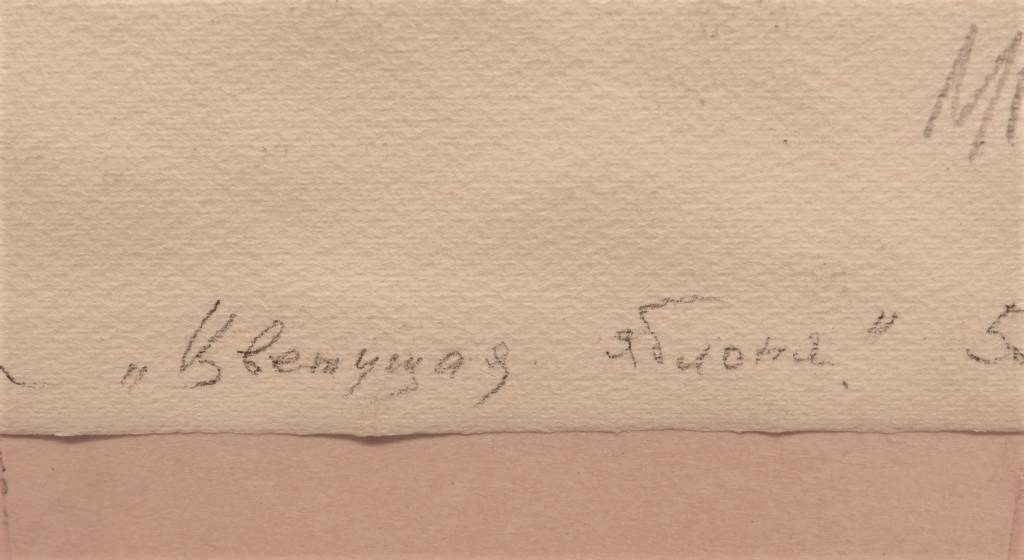 „Цветущая яблоня."